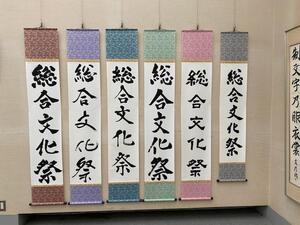 総合文化祭
総合文化祭
総合文化祭
総合文化祭
総合文化祭
総合文化祭
乃服衣裳